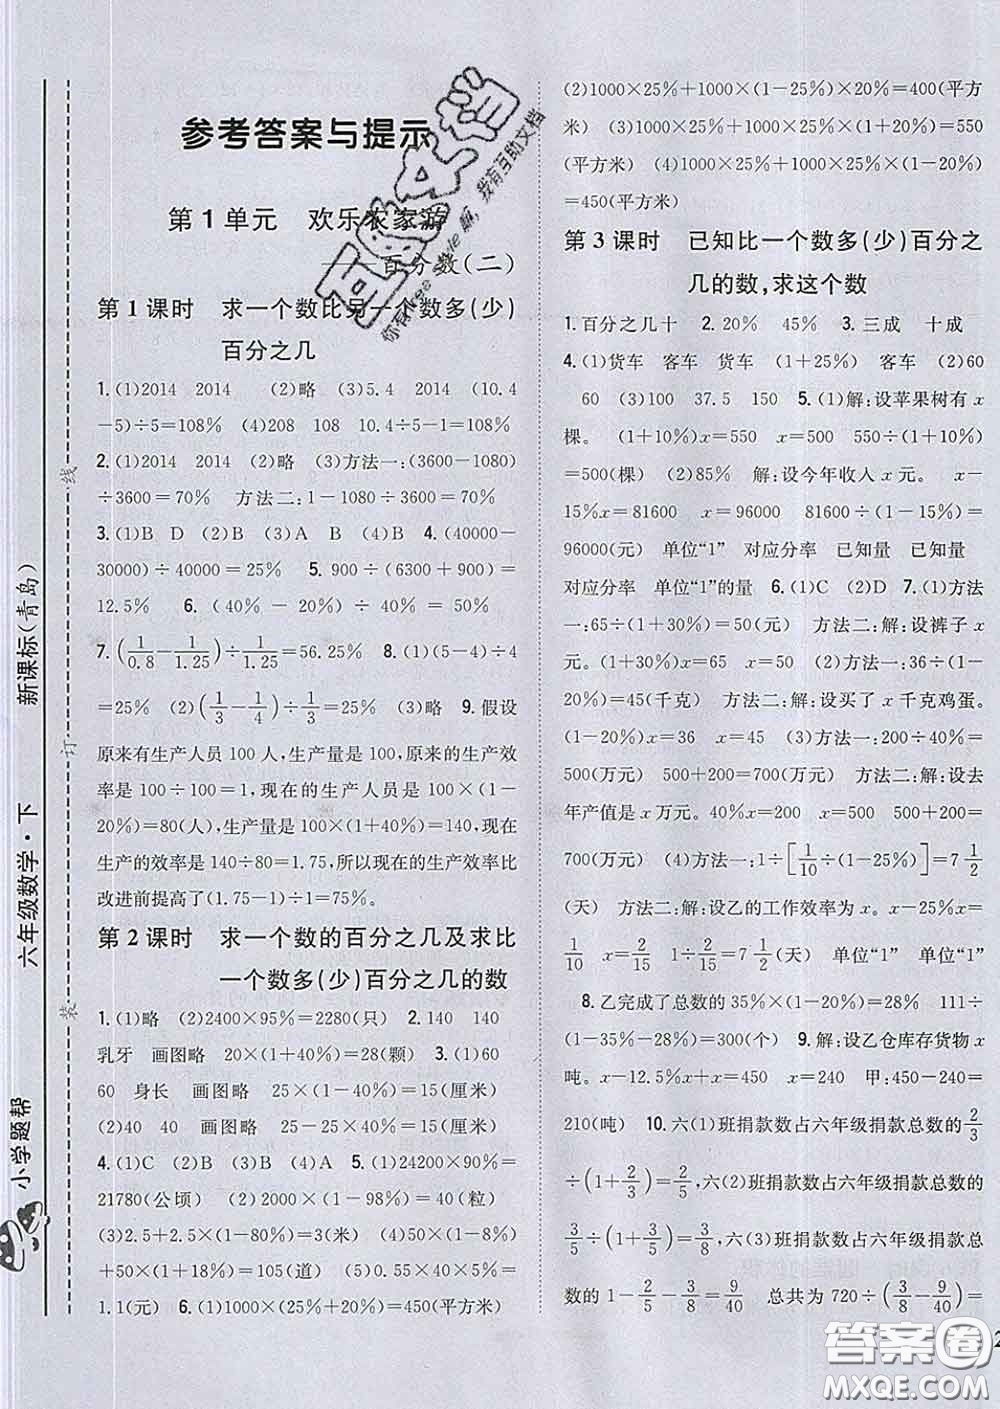 参考答案与提示
第1单元 欢乐农家游
——百分数(二)
第1课时 求一个数比另一个数多(少)
百分之几
1.(1)2014 2014 (2)略 (3)5.4 2014 (10.4
-5)÷5=108% (4)208 108 10.4÷5-1=108%
2.(1)2014 2014 (2)略 (3)方法一:(3600-1080)
÷3600=70% 方法二:1-1080÷3600=70%
3.(1)B D (2)B (3)A B (4)B 4.(40000-
30000)÷40000=25% 5.900÷(6300+900)=
12.5% 6.(40%-20%)÷40%=50%
7.(1/0.8-1/1.25)÷1/1.25=56.25% 8.(1)(5-4)÷4
=25% (2)(1/3-1/4)÷1/3=25% (3)略 9.假设
原来有生产人员100人,生产量是100,原来的生产效
率是100÷100=1,现在的生产人员是100×(1-
20%)=80(人),生产量是100×(1+40%)=140,现在
生产的效率是140÷80=1.75,所以现在的生产效率比
改进前提高了(1.75-1)÷1=75%。
第2课时 求一个数的百分之几及求比
一个数多(少)百分之几的数
1.(1)略 (2)2400×95%=2280(只) 2.140 140
乳牙 画图略 20×(1+40%)=28(颗) 3.(1)60
60 身长 画图略 25×(1-40%)=15(厘米)
(2)40 40 画图略 25-25×40%=15(厘米)
4.(1)C (2)B (3)B (4)A 5.(1)24200×90%=
21780(公顷) (2)2000×(1-98%)=40(粒)
(3)2.5+2.5×(1-80%)=3(米) (4)50×(1-8%)
+50×(1+18%)=105(道) (5)0.55×2×100%=
1.1(元) 6.(1)1000×(25%+20%)=450(平方米)
(2)1000×25%+1000×(1-25%)×20%=400(平方
米) (3)1000×25%+1000×(1+20%)×25%=550
(平方米) (4)1000×25%+1000×25%×(1-20%)
=450(平方米)
第3课时 已知比一个数多(少)百分之
几的数,求这个数
1.百分之几十 2.20% 45% 3.三成 十成
4.(1)货车 客车 货车 (1+25%) 客车 (2)60
60 (3)100 37.5 150 5.(1)解:设苹果树有x
棵。 (1+10%)x=550 x=500 550÷(1+10%)
=500(棵) (2)85% 解:设今年收入x元。 x-
15%x=81600 x=96000 81600÷(1-15%)=
96000(元) 单位“1” 对应分率 已知量 已知量
对应分率 单位“1”的量 6.(1)C (2)D 7.(1)方法
一:65÷(1+30%)=50(元) 方法二:解:设裤子x
元。 (1+30%)x=65 x=50 (2)方法一:36÷(1-
20%)=45(千克) 方法二:解:设买了x千克鸡蛋。
(1-20%)x=36 x=45 (3)方法一:200÷40%=
500(万元) 500+200=700(万元) 方法二:解:设去
年产值是x万元。40%x=200 x=500 500+200=
700(万元) (4)方法一:1÷[1/10÷(1-25%)]=7 1/2
(天) 方法二:解:设乙的工作效率为x。x-25%x=
1/10 x=2/15 1÷2/15=7 1/2(天) 单位“1” 单位“1”
8.乙完成了总数的35%×(1-20%)=28% 111÷
(1-35%-28%)=300(个) 9.解:设乙仓库存货物x
吨。 x-12.5%x+x=450 x=240 甲:450-240=
210(吨) 10.六(1)班捐款数占六年级捐款总数的2/3
÷(1+2/3)=2/5,六(2)班捐款数占六年级捐款总数的
3/5÷(1+3/5)=3/8,六(3)班捐款数占六年级捐款总
数的1-2/5-3/8=9/40 总共为720÷(3/8-9/40)=
新课标(青岛)
六年级数学·下
小学题帮
线
订
装
答案圈
MXQE.COM
2